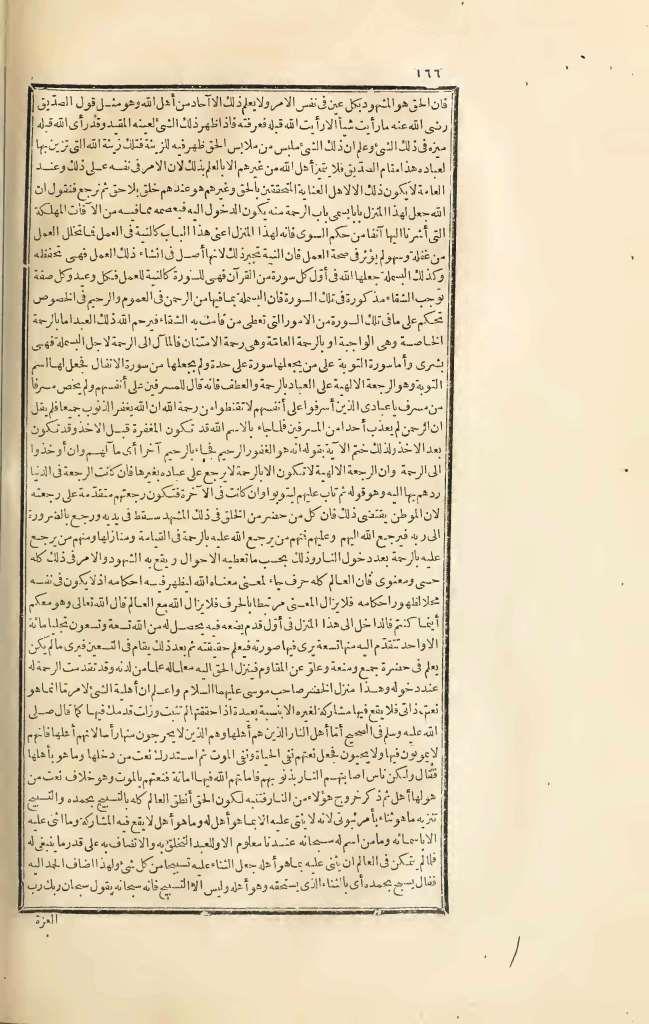 ١٦٦
فان الحق هو المشهود بكل عين فى نفس الامر ولا يعلم ذلك الا آحاد من أهل الله وهو مثل قول الصديق
رضى الله عنه ما رأيت شيأ الا رأيت الله قبله فعرفته فاذا ظهر ذلك الشئ لعينه المقيد وقد رأى الله قبله
ميزه فى ذلك الشئ وعلم ان ذلك الشئ ملبس من ملابس الحق ظهر فيه للزينة فتلك زينة الله التى تزين بها
لعباده هذا مقام الصديق فلا يتميز أهل الله من غيرهم الا بالعلم بذلك لان الامر فى نفسه على ذلك وعند
العامة لا يكون ذلك الا لاهل العناية المتحققين بالحق وغيرهم هو عندهم خلق بلا حق ثم نرجع فنقول ان
الله جعل لهذا المنزل بابا يسمى باب الرحمة منه يكون الدخول اليه فيعصمه مما فيه من الآفات المهلكة
التى أشرنا اليها آنفا من حكم السوى فانه لهذا المنزل اعنى هذا الباب كالنية فى العمل بما تخلل العمل
من غفلة وسهو لم يؤثر فى صحة العمل فان النية تجبر ذلك لانها أصل فى انشاء ذلك العمل فهى تحفظه
وكذلك البسملة جعلها الله فى أول كل سورة من القرآن فهى للسورة كالنية للعمل فكل وعيد وكل صفة
توجب الشقاء مذكورة فى تلك السورة فان البسملة بما فيها من الرحمن فى العموم والرحيم فى الخصوص
تحكم على ما فى تلك السورة من الامور التى تعطى من قامت به الشقاء فيرحم الله ذلك العبد اما بالرحمة
الخاصة وهى الواجبة او بالرحمة العامة وهى رحمة الامتنان فالمآل الى الرحمة لاجل البسملة فهى
بشرى وأما سورة التوبة على من يجعلها سورة على حدة ولم يجعلها من سورة الانفال فجعل لها اسم
التوبة وهو الرجعة الالهية على العباد بالرحمة والعطف فانه قال للمسرفين على أنفسهم ولم يخص مسرفا
من مسرف يا عبادى الذين أسرفوا على أنفسهم لا تقنطوا من رحمة الله ان الله يغفر الذنوب جميعا فلم يقل
ان الرحمن لم يعذب أحدا من المسرفين فلما جاء بالاسم الله قد تكون المغفرة قبل الاخذ وقد تكون
بعد الاخذ ولذلك ختم الآية بقوله انه هو الغفور الرحيم فجاء بالرحيم آخرا أى مآلهم وان أوخذوا
الى الرحمة وان الرجعة الالهية لا تكون الا بالرحمة لا يرجع على عباده بغيرها فان كانت الرجعة فى الدنيا
ردهم بها اليه وهو قوله ثم تاب عليهم ليتوبوا وان كانت فى الآخرة فتكون رجعتهم متقدمة على رجعته
لان الموطن يقتضى ذلك فان كل من حضر من الخلق فى ذلك المشهد سقط فى يديه ورجع بالضرورة
الى ربه فيرجع الله اليهم وعليهم فمنهم من يرجع الله عليه بالرحمة فى القيامة ومنازلها ومنهم من يرجع
عليه بالرحمة بعد دخول النار وذلك بحسب ما تعطيه الاحوال ويقع به الشهود والامر فى ذلك كله
حسى ومعنوى فان العالم كله حرف جاء لمعنى معناه الله ليظهر فيه احكامه اذ لا يكون فى نفسه
محلا لظهور احكامه فلا يزال المعنى مرتبطا بالحرف فلا يزال الله مع العالم قال الله تعالى وهو معكم
أينما كنتم فالداخل الى هذا المنزل فى أول قدم يضعه فيه يحصل له من الله تسعة وتسعون تجليا مائة
الا واحد تتقدم اليه منها تسعة يرى فيها صورته فيعلم حقيقته ثم بعد ذلك يقام فى التسعين فيرى ما لم يكن
يعلم فى حضرة جمع ومنعة وعلو عن المقاوم فينزل الحق اليه معلما له علما من لدنه وقد تقدمت الرحمة له
عند دخوله وهذا منزل الخضر صاحب موسى عليهما السلام واعلم ان أهلية الشئ لامر ما انما هو
نعت ذاتى فلا يقع فيها مشاركة لغيره الا بنسبة بعيدة اذا حققتها لم تثبت وزلت قدمك فيها كما قال صلى
الله عليه وسلم فى الصحيح أما أهل النار الذين هم أهلها وهم الذين لا يخرجون منها رأسا لانهم أهلها فانهم
لا يموتون فيها ولا يحيون فجعل نعتهم نفى الحياة ونفى الموت ثم استدرك نعت من دخلها وما هو بأهلها
فقال ولكن ناس اصابتهم النار بذنوبهم فاماتهم الله فيها اماتة فنعتهم بالموت وهو خلاف نعت من
هو لها أهل ثم ذكر خروج هؤلاء من النار فتنبه لكون الحق أنطق العالم كله بالتسبيح بحمده والتسبيح
تنزيه ما هو ثناء بأمر ثبوتى لانه لا يثنى عليه الا بما هو أهل له وما هو أهل له لا يقع فيه المشاركة وما اثنى عليه
الا باسمائه وما من اسم له سبحانه عندنا معلوم الا وللعبد التخلق به والاتصاف به على قدر ما ينبغى له
فلما لم يتمكن فى العالم ان يثنى عليه بما هو أهله جعل الثناء عليه تسبيحا من كل شئ ولهذا اضاف الحمد اليه
فقال يسبح بحمده أى بالثناء الذى يستحقه وهو أهله وليس الا التسبيح فانه سبحانه يقول سبحان ربك رب
العزة